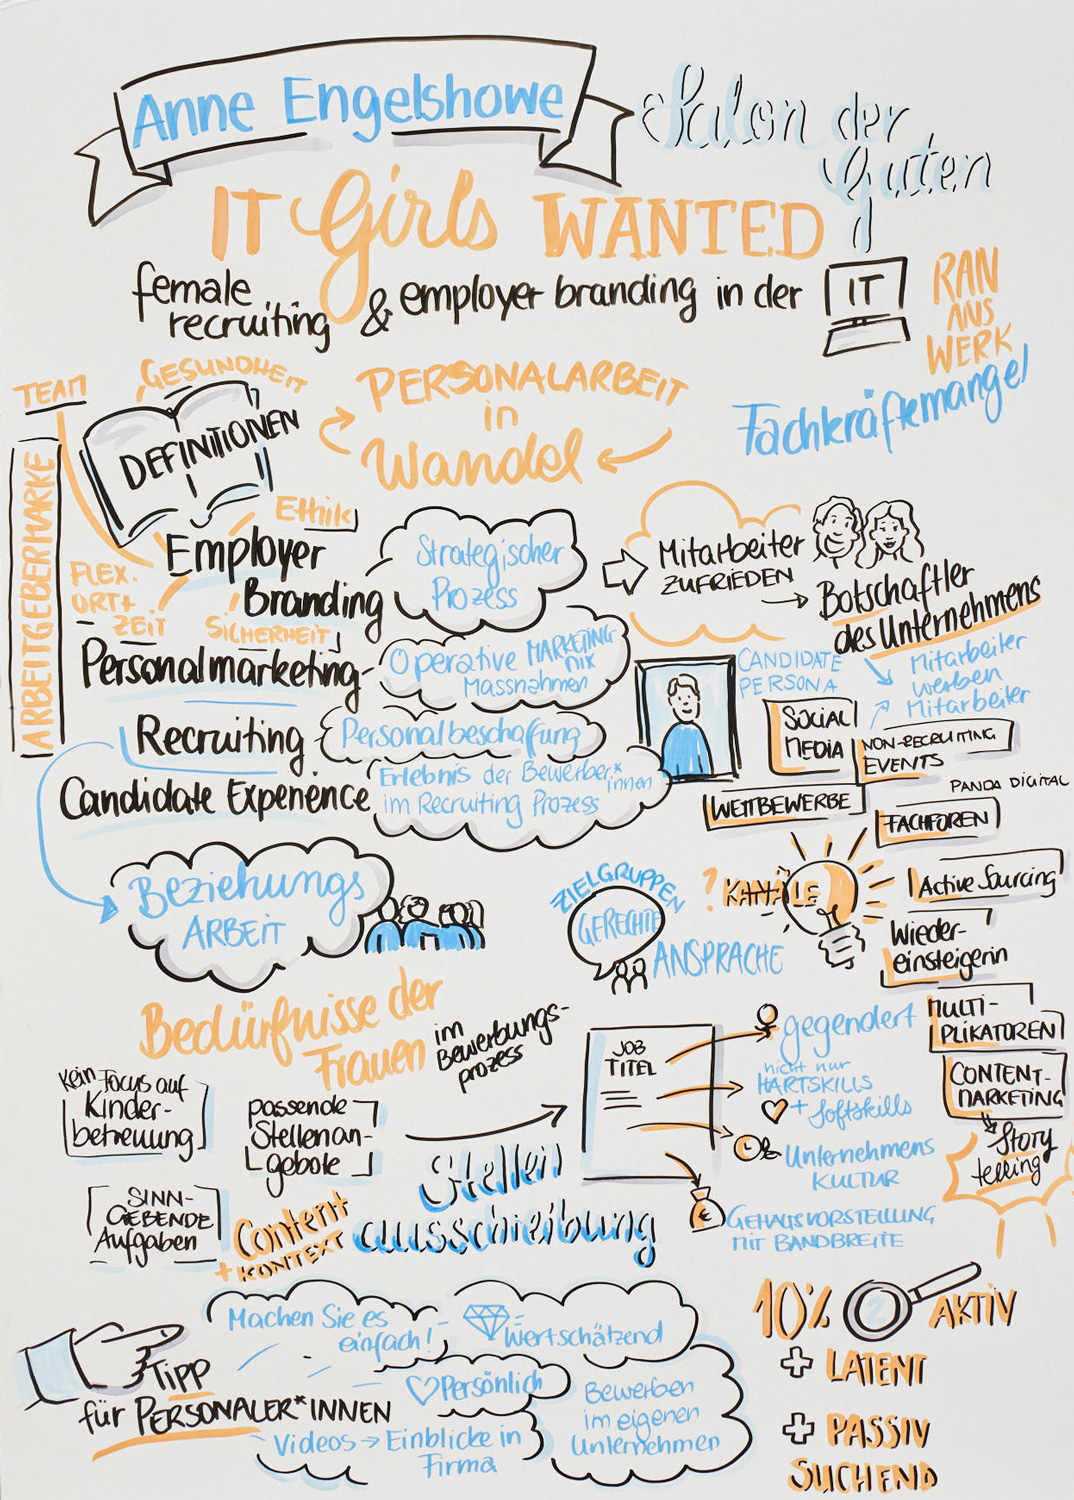 Anne Engelshowe
Salon der
Guten
IT Girls WANTED
female
recruiting
& employer branding in der
IT
RAN
ANS
WERK
Fachkräftemangel
TEAM
GESUNDHEIT
DEFINITIONEN
PERSONALARBEIT
in
Wandel
ARBEITGEBERMARKE
Ethik
FLEX.
ORT+
ZEIT
SICHERHEIT
Employer
Branding
Strategischer
Prozess
Mitarbeiter
ZUFRIEDEN
Botschaftler
des Unternehmens
Mitarbeiter
werben
Mitarbeiter
Personalmarketing
Operative MARKETING
MIX
Massnahmen
CANDIDATE
PERSONA
Recruiting
Personalbeschaffung
Candidate Experience
Erlebnis der Bewerber*
innen
im Recruiting Prozess
SOCIAL
MEDIA
NON-RECRUITING
EVENTS
PANDA DIGITAL
WETTBEWERBE
FACHFOREN
Beziehungs
ARBEIT
ZIELGRUPPEN
GERECHTE
ANSPRACHE
? KANÄLE
Active Sourcing
Wieder-
einsteigerin
MULTI-
PLIKATOREN
CONTENT-
MARKETING
Story
telling
Bedürfnisse der
Frauen
im
Bewerbungs-
prozess
kein Focus auf
Kinder-
betreuung
passende
Stellenan-
gebote
SINN-
GEBENDE
Aufgaben
Content
+ KONTEXT
Stellen
ausschreibung
JOB
TITEL
gegendert
nicht nur
HARTSKILLS
+ Softskills
Unternehmens
KULTUR
€
GEHALTSVORSTELLUNG
MIT BANDBREITE
TIPP
für PERSONALER*INNEN
Machen Sie es
einfach!
Wertschätzend
Persönlich
Videos → Einblicke in
Firma
Bewerben
im eigenen
Unternehmen
10% AKTIV
+ LATENT
+ PASSIV
SUCHEND